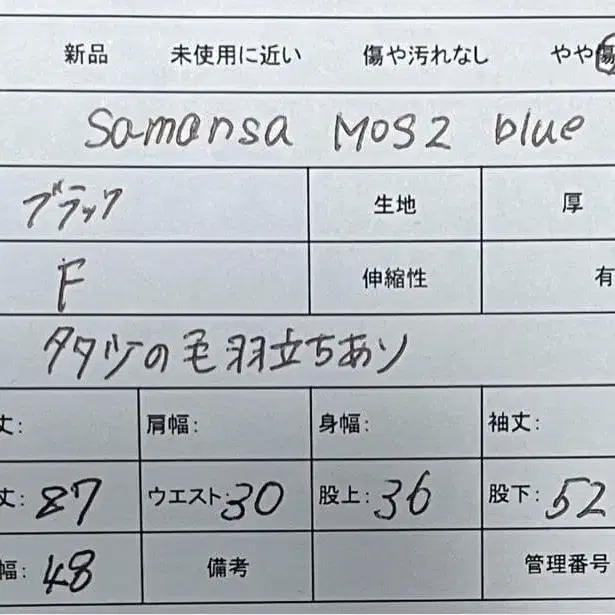 新品 未使用に近い 傷や汚れなし やや傷
Samansa MOS2 blue
ブラック 生地 厚
F 伸縮性 有
タタツの毛羽立ちあり
丈: 肩幅: 身幅: 袖丈:
丈: 87 ウエスト: 30 股上: 36 股下: 52
幅: 48 備考 管理番号